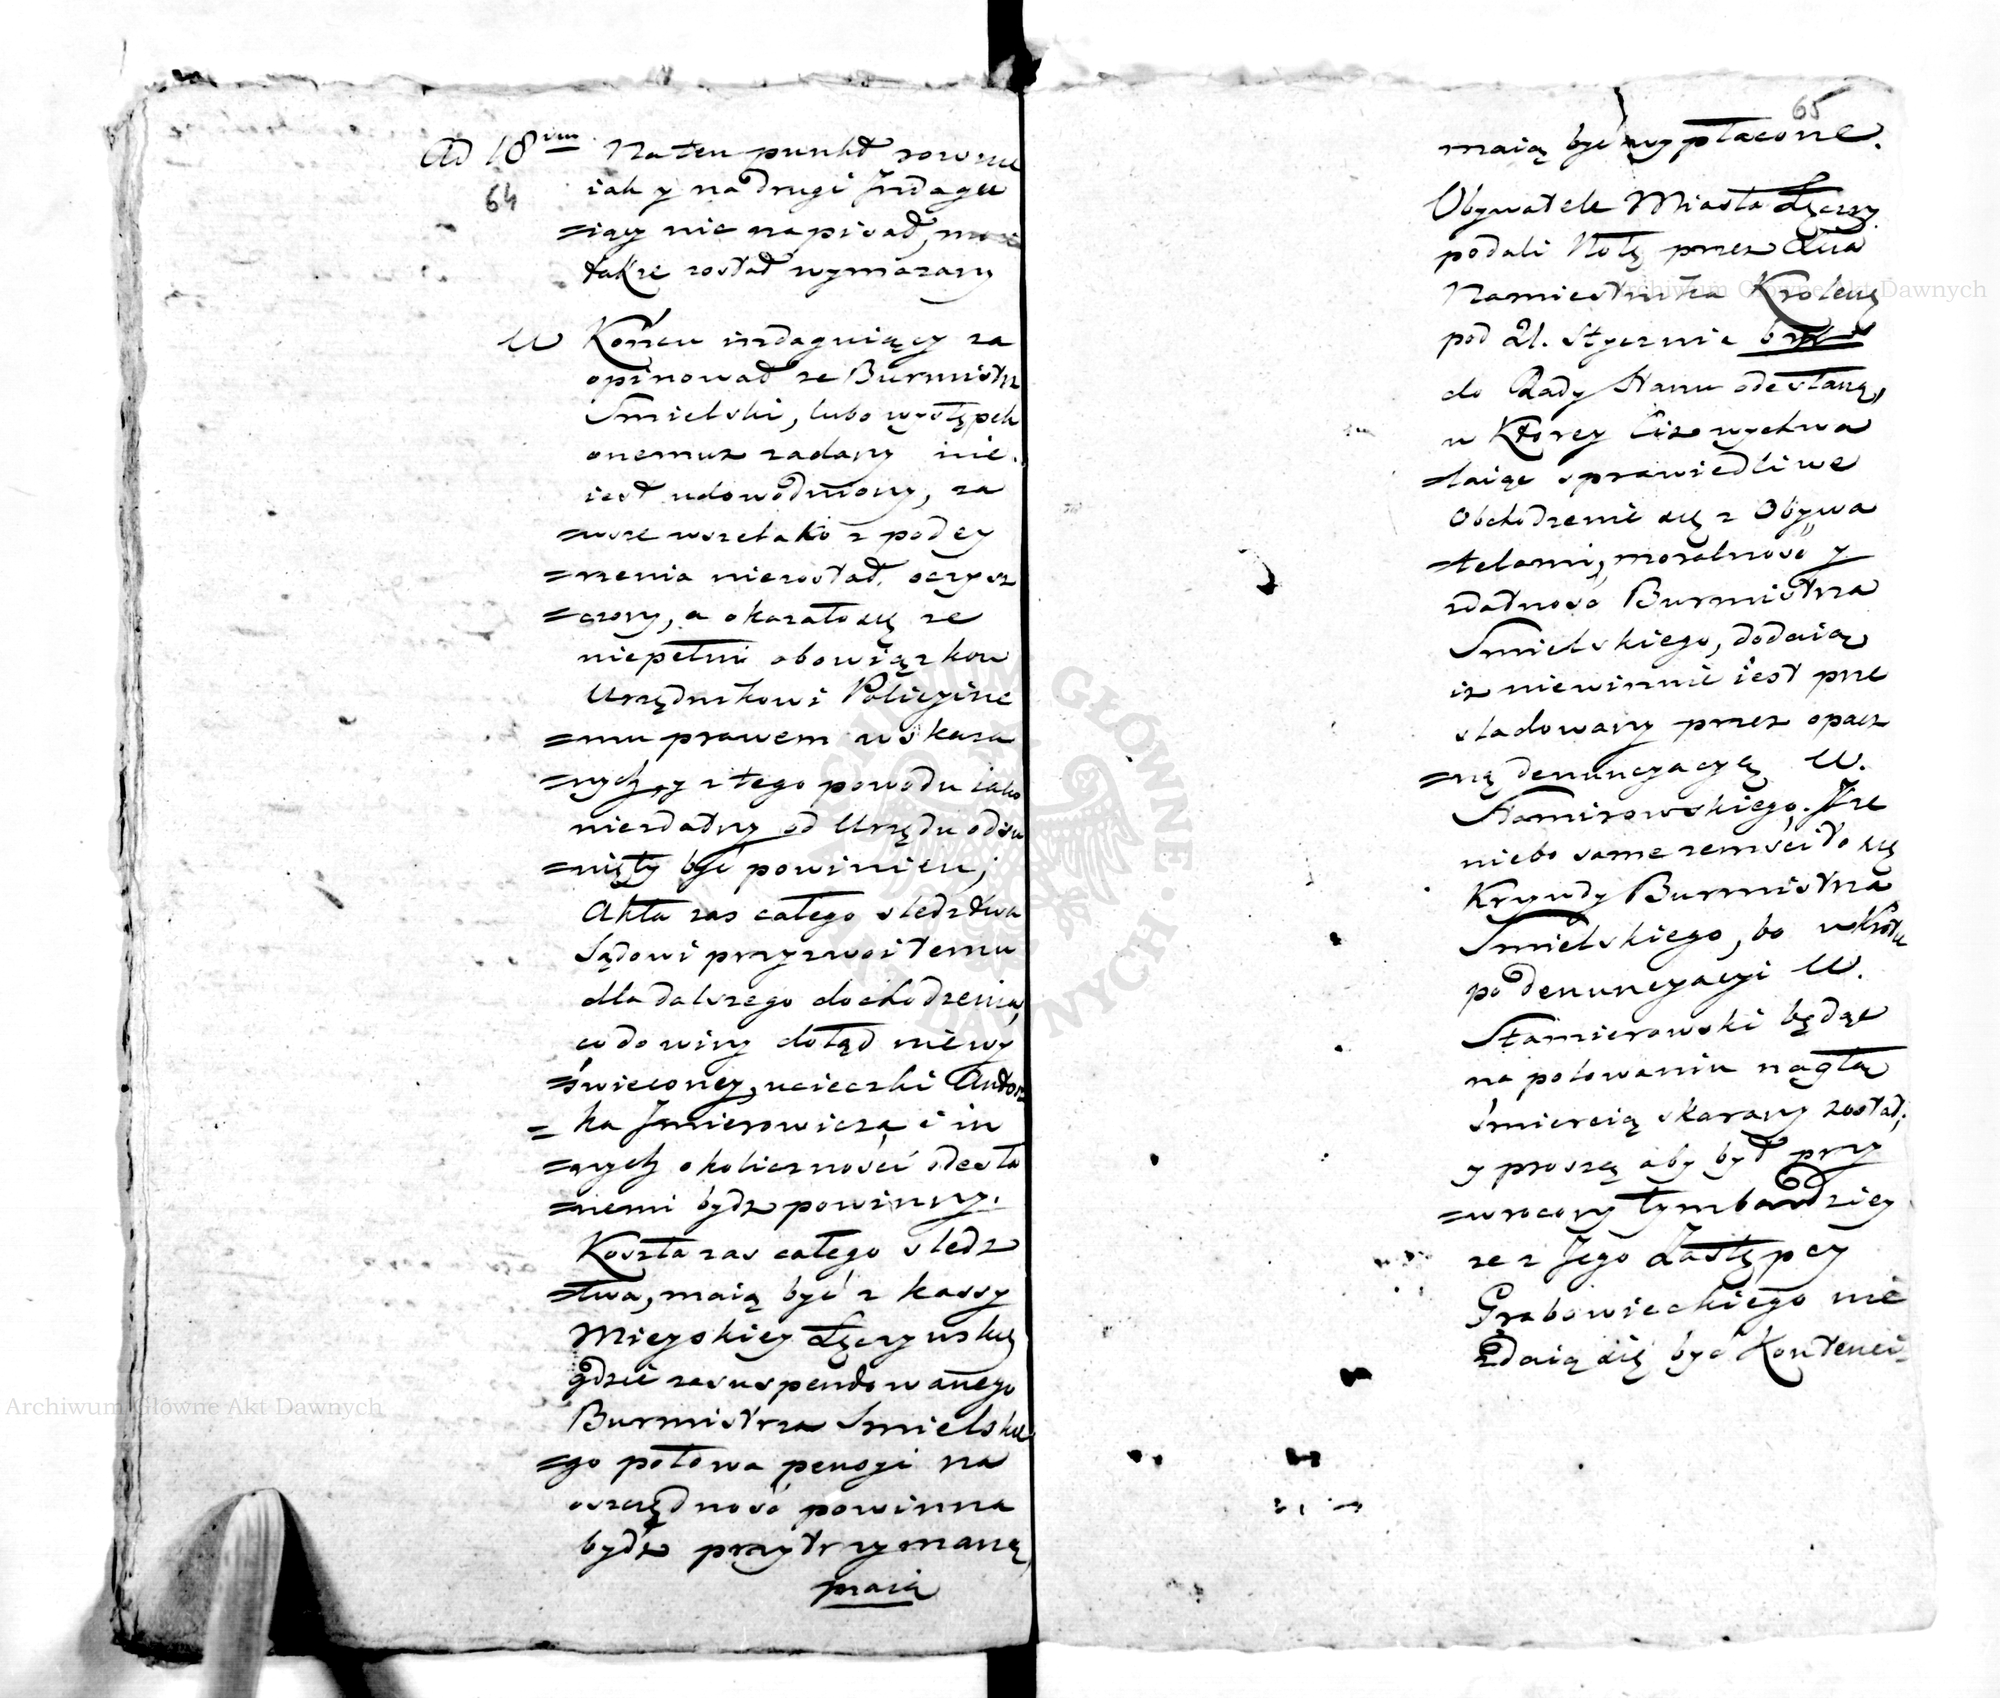 Ad 18vum Na ten punkt rowнie
64
iak y na drugi Jndagu
=iący nic napisał,
także został wymazany
W Końcu indaguiący za
opinował ze Burmistrz
Smielski, lubo występek
onemuz zadany nie
iest udowodniony, za
=wsze wszelako z podey
=rzenia niezostał oczysz
=czony, a okazało się ze
niepełni obowiązkow
Urzędnikowi Policyine
=mu prawem wskaza
=nych, y z tego powodu iako
niezdatny od Urzędu odsu
=nięty być powinien;
Akta zas całego sledztwa
Sądowi przyzwoitemu
dla dalszego dochodzenia,
co do winy dotąd niewy
=świeconey, ucieczki Antos
=ka Jmierowicza i in
=nych okoliczności odesła
=nemi bydz powinny.
Koszta zas całego sledz
=twa, maią być z kassy
Mieyskiey Łęczyńskiey
gdzie zasuspendowanego
Burmistrza Smielskie
=go połowa pensyi na
oszczędność powinna
bydź przytrzymaną,
maią
65
maią być wypłacone.
Obywatele Miasta Łęczny
podali Notę przez Xcia
Namiestnika Krolew
pod 21. Stycznia b. r.
do Rady Stanu odesłaną,
w Ktorey Ciz wychwa
=laiąc sprawiedliwe
Obchodzenie się z Obywa
=telami, moralność y
zdatność Burmistrza
Smielskiego, dodaią
iz niewinnie iest prze
sladowany przez opacz
=ną denuncyacyą W.
Stamirowskiego. Jze
niebo same zemściło się
Krzywdy Burmistrza
Smielskiego, bo wkrótce
po denuncyacyi W.
Stamierowski będąc
na polowaniu nagłą
śmiercią skarany został;
y proszą aby był przy
=wrocony tymbardziey
ze z Jego Zastępcy
Grabowieckiego nie
zdaią się być Kontenci
Archiwum Główne Akt Dawnych
Archiwum Główne Akt Dawnych
ARCHIWUM GŁÓWNE AKT DAWNYCH